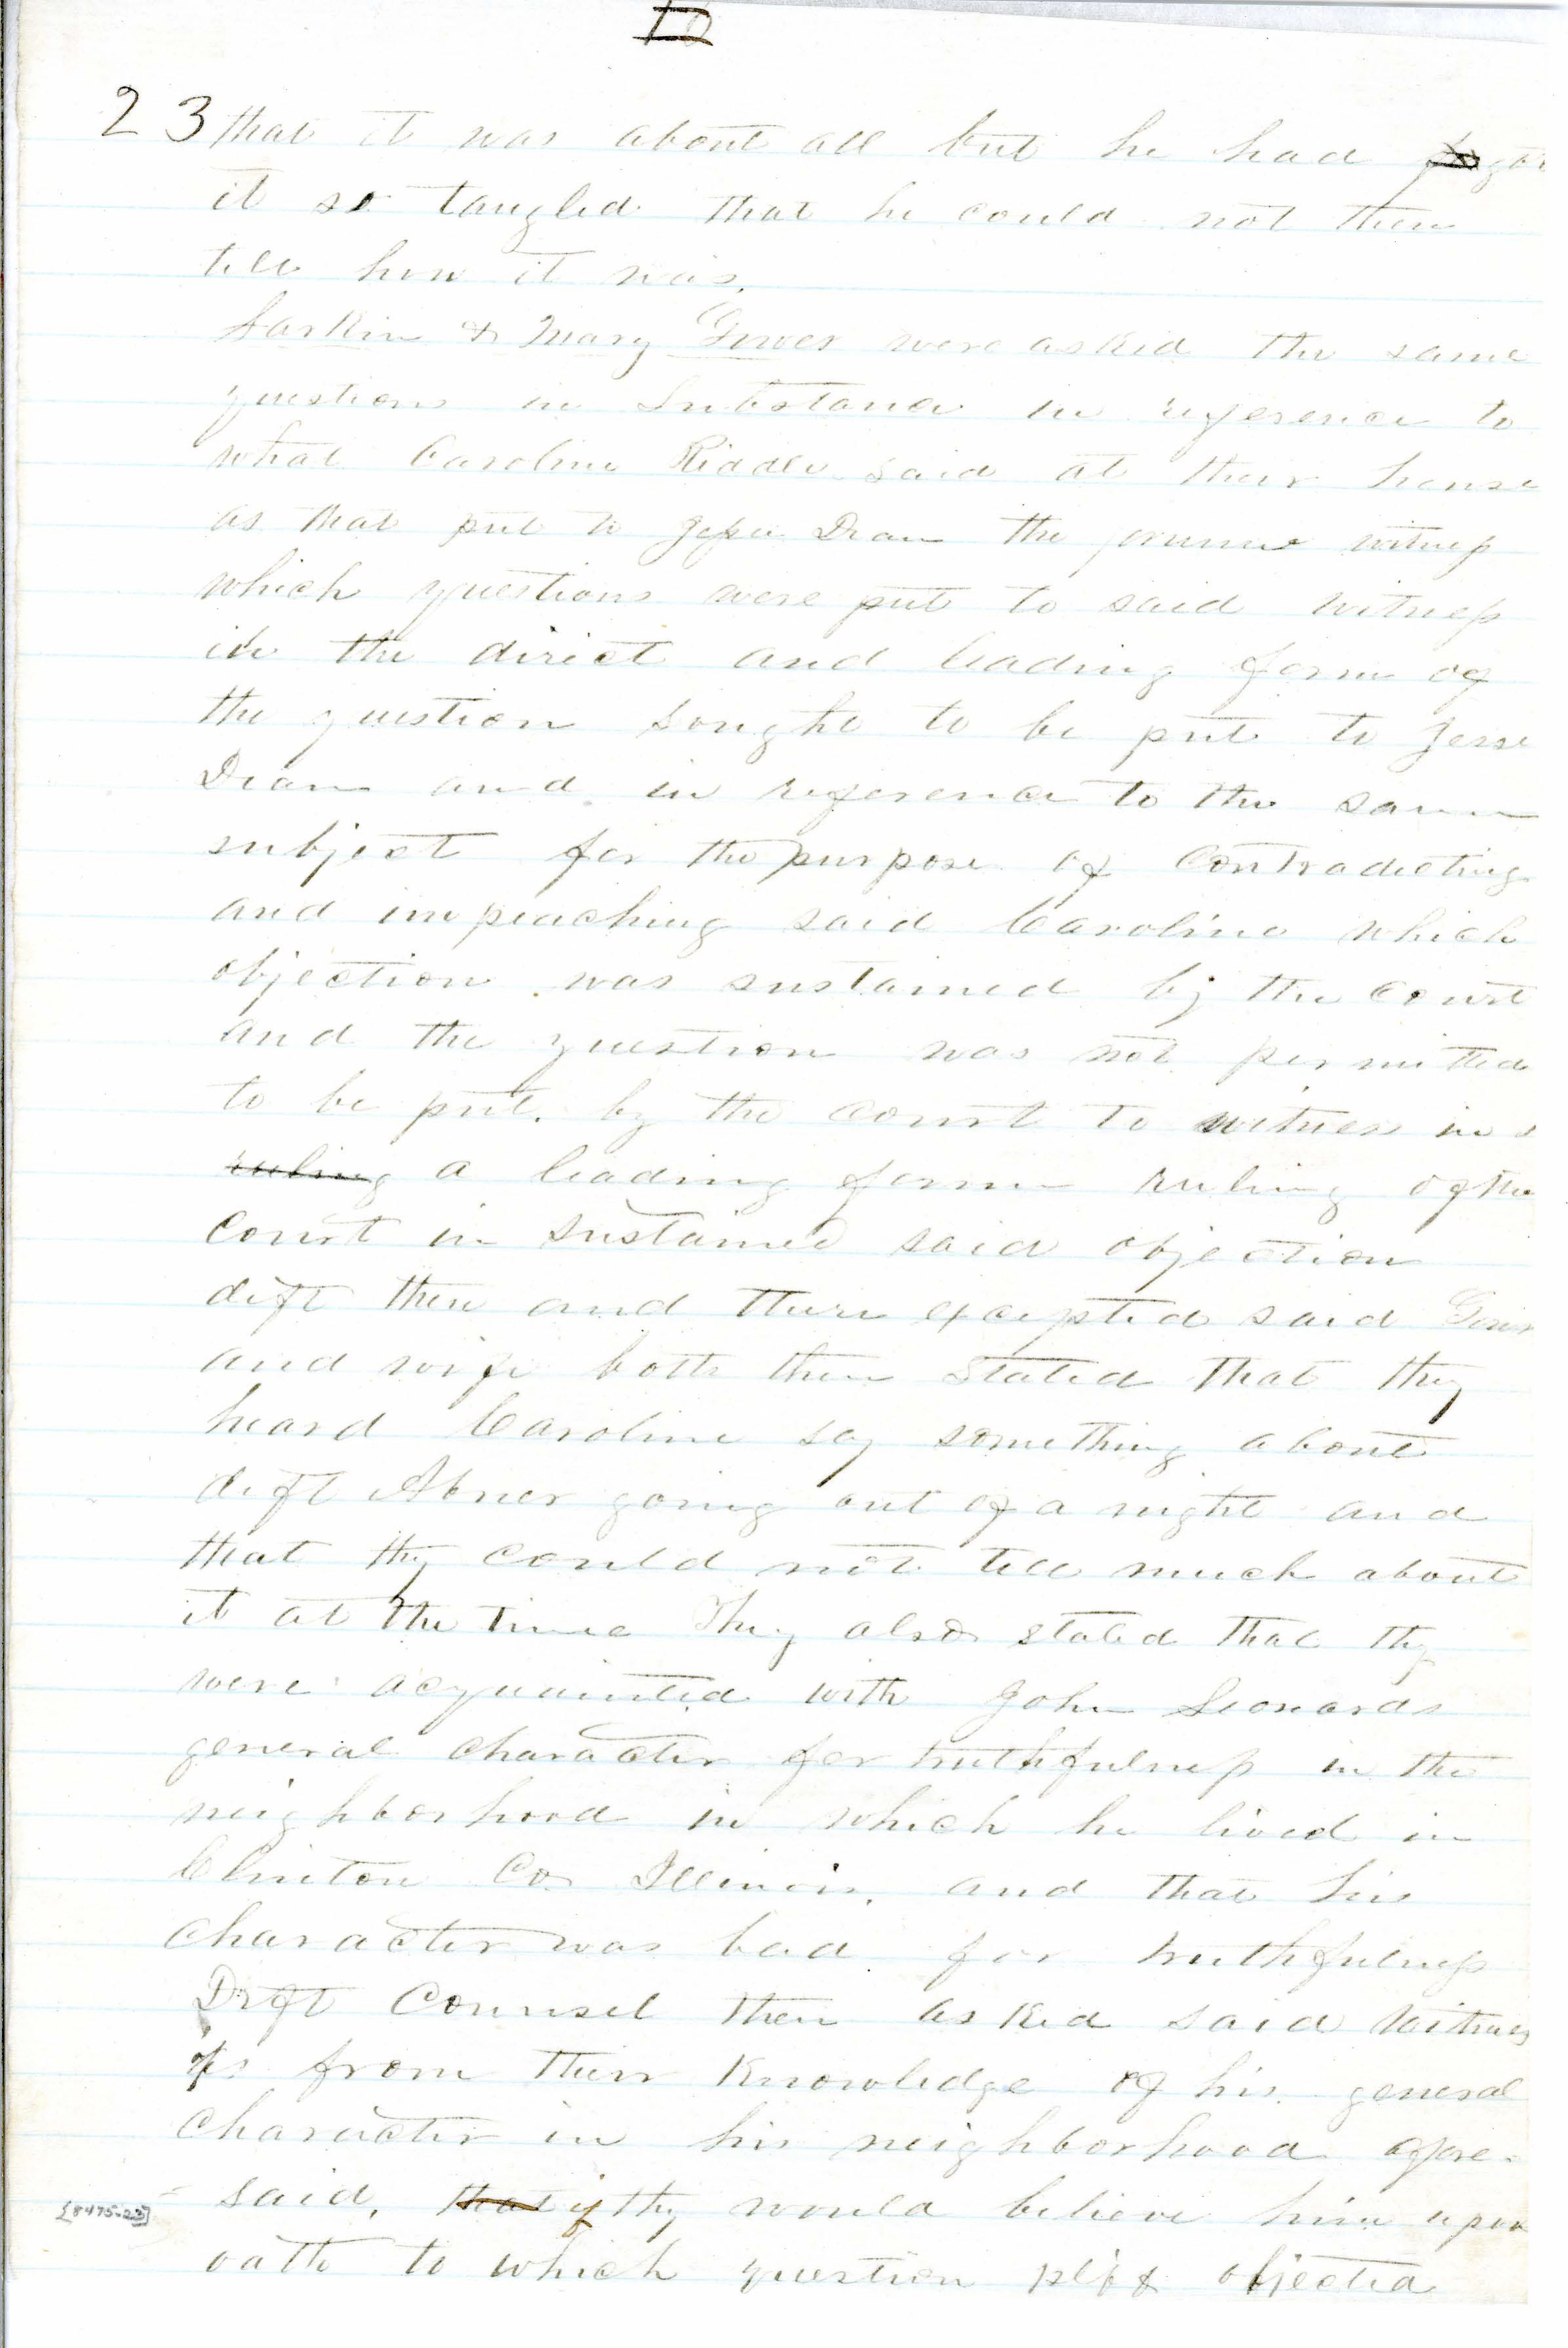 23 that it was about all but he had got
it so tangled that he could not then
tell how it was.
Larkin & Mary Gower were asked the same
questions in Substance in reference to
what Caroline Riddle said at their house
as that put to Jesse Dean the former witness
which questions were put to said witness
in the direct and leading form of
the question sought to be put to Jesse
Dean and in reference to the same
subject for the purpose of Contradicting
and impeaching said Caroline which
objection was sustained by the Court
and the question was not permitted
to be put. by the Court to witness in
ruling a leading form ruling of the
Court in Sustained said objection
deft then and there excepted said
and wife both then Stated that they
heard Caroline say something about
deft Abner going out of a night and
that thy could not tell much about
it at the time They also stated that thy
were acquainted with John Leonards
general character for truthfulness in the
neighborhood in which he lived in
Clinton Co Illinois. and that his
character was bad for truthfulness
Deft Counsel then asked said Witness
from their Knowledge of his general
Character in his neighborhood afore-
said, that if thy would believe him upon
[8475-23]
oath to which question plff objected